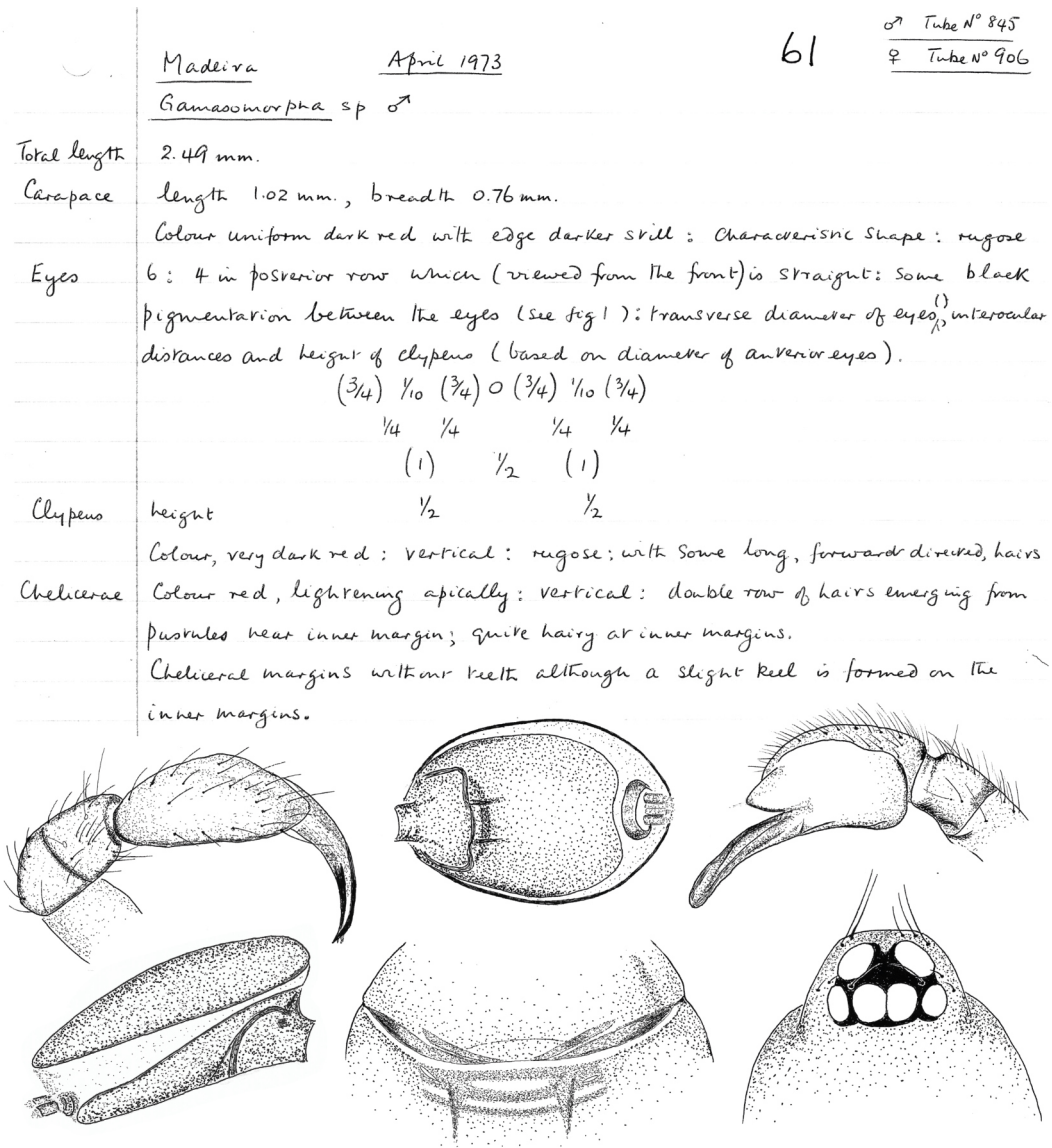 ♂ Tube Nº 845
61
♀ Tube Nº 906
Madeira April 1973
Gamasomorpha sp ♂
Total length 2.49 mm.
Carapace length 1.02 mm., breadth 0.76 mm.
Colour uniform dark red with edge darker still : Characteristic shape : rugose
Eyes 6 : 4 in posterior row which (viewed from the front) is straight : Some black
pigmentation between the eyes (see fig 1 ) : transverse diameter of eyes () , interocular
distances and height of clypeus (based on diameter of anterior eyes).
(3/4) 1/10 (3/4) 0 (3/4) 1/10 (3/4)
1/4 1/4 1/4 1/4
(1) 1/2 (1)
Clypeus height 1/2 1/2
Colour, very dark red : vertical : rugose ; with some long, forward directed, hairs
Chelicerae Colour red, lightening apically : vertical : double row of hairs emerging from
pustules near inner margin ; quite hairy at inner margins.
Cheliceral margins without teeth although a slight keel is formed on the
inner margins.